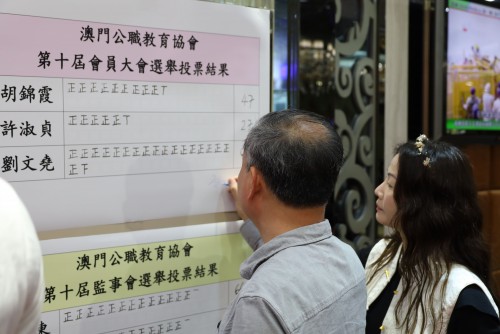 澳門公職教育協會
第十屆會員大會選舉投票結果
胡錦霞 正正正正正正正正正丅 47
許淑貞 正正正正丅
劉文堯 正正正正正正正正正正正正正正
正下
澳門公職教育協會
第十屆監事會選舉投票結果